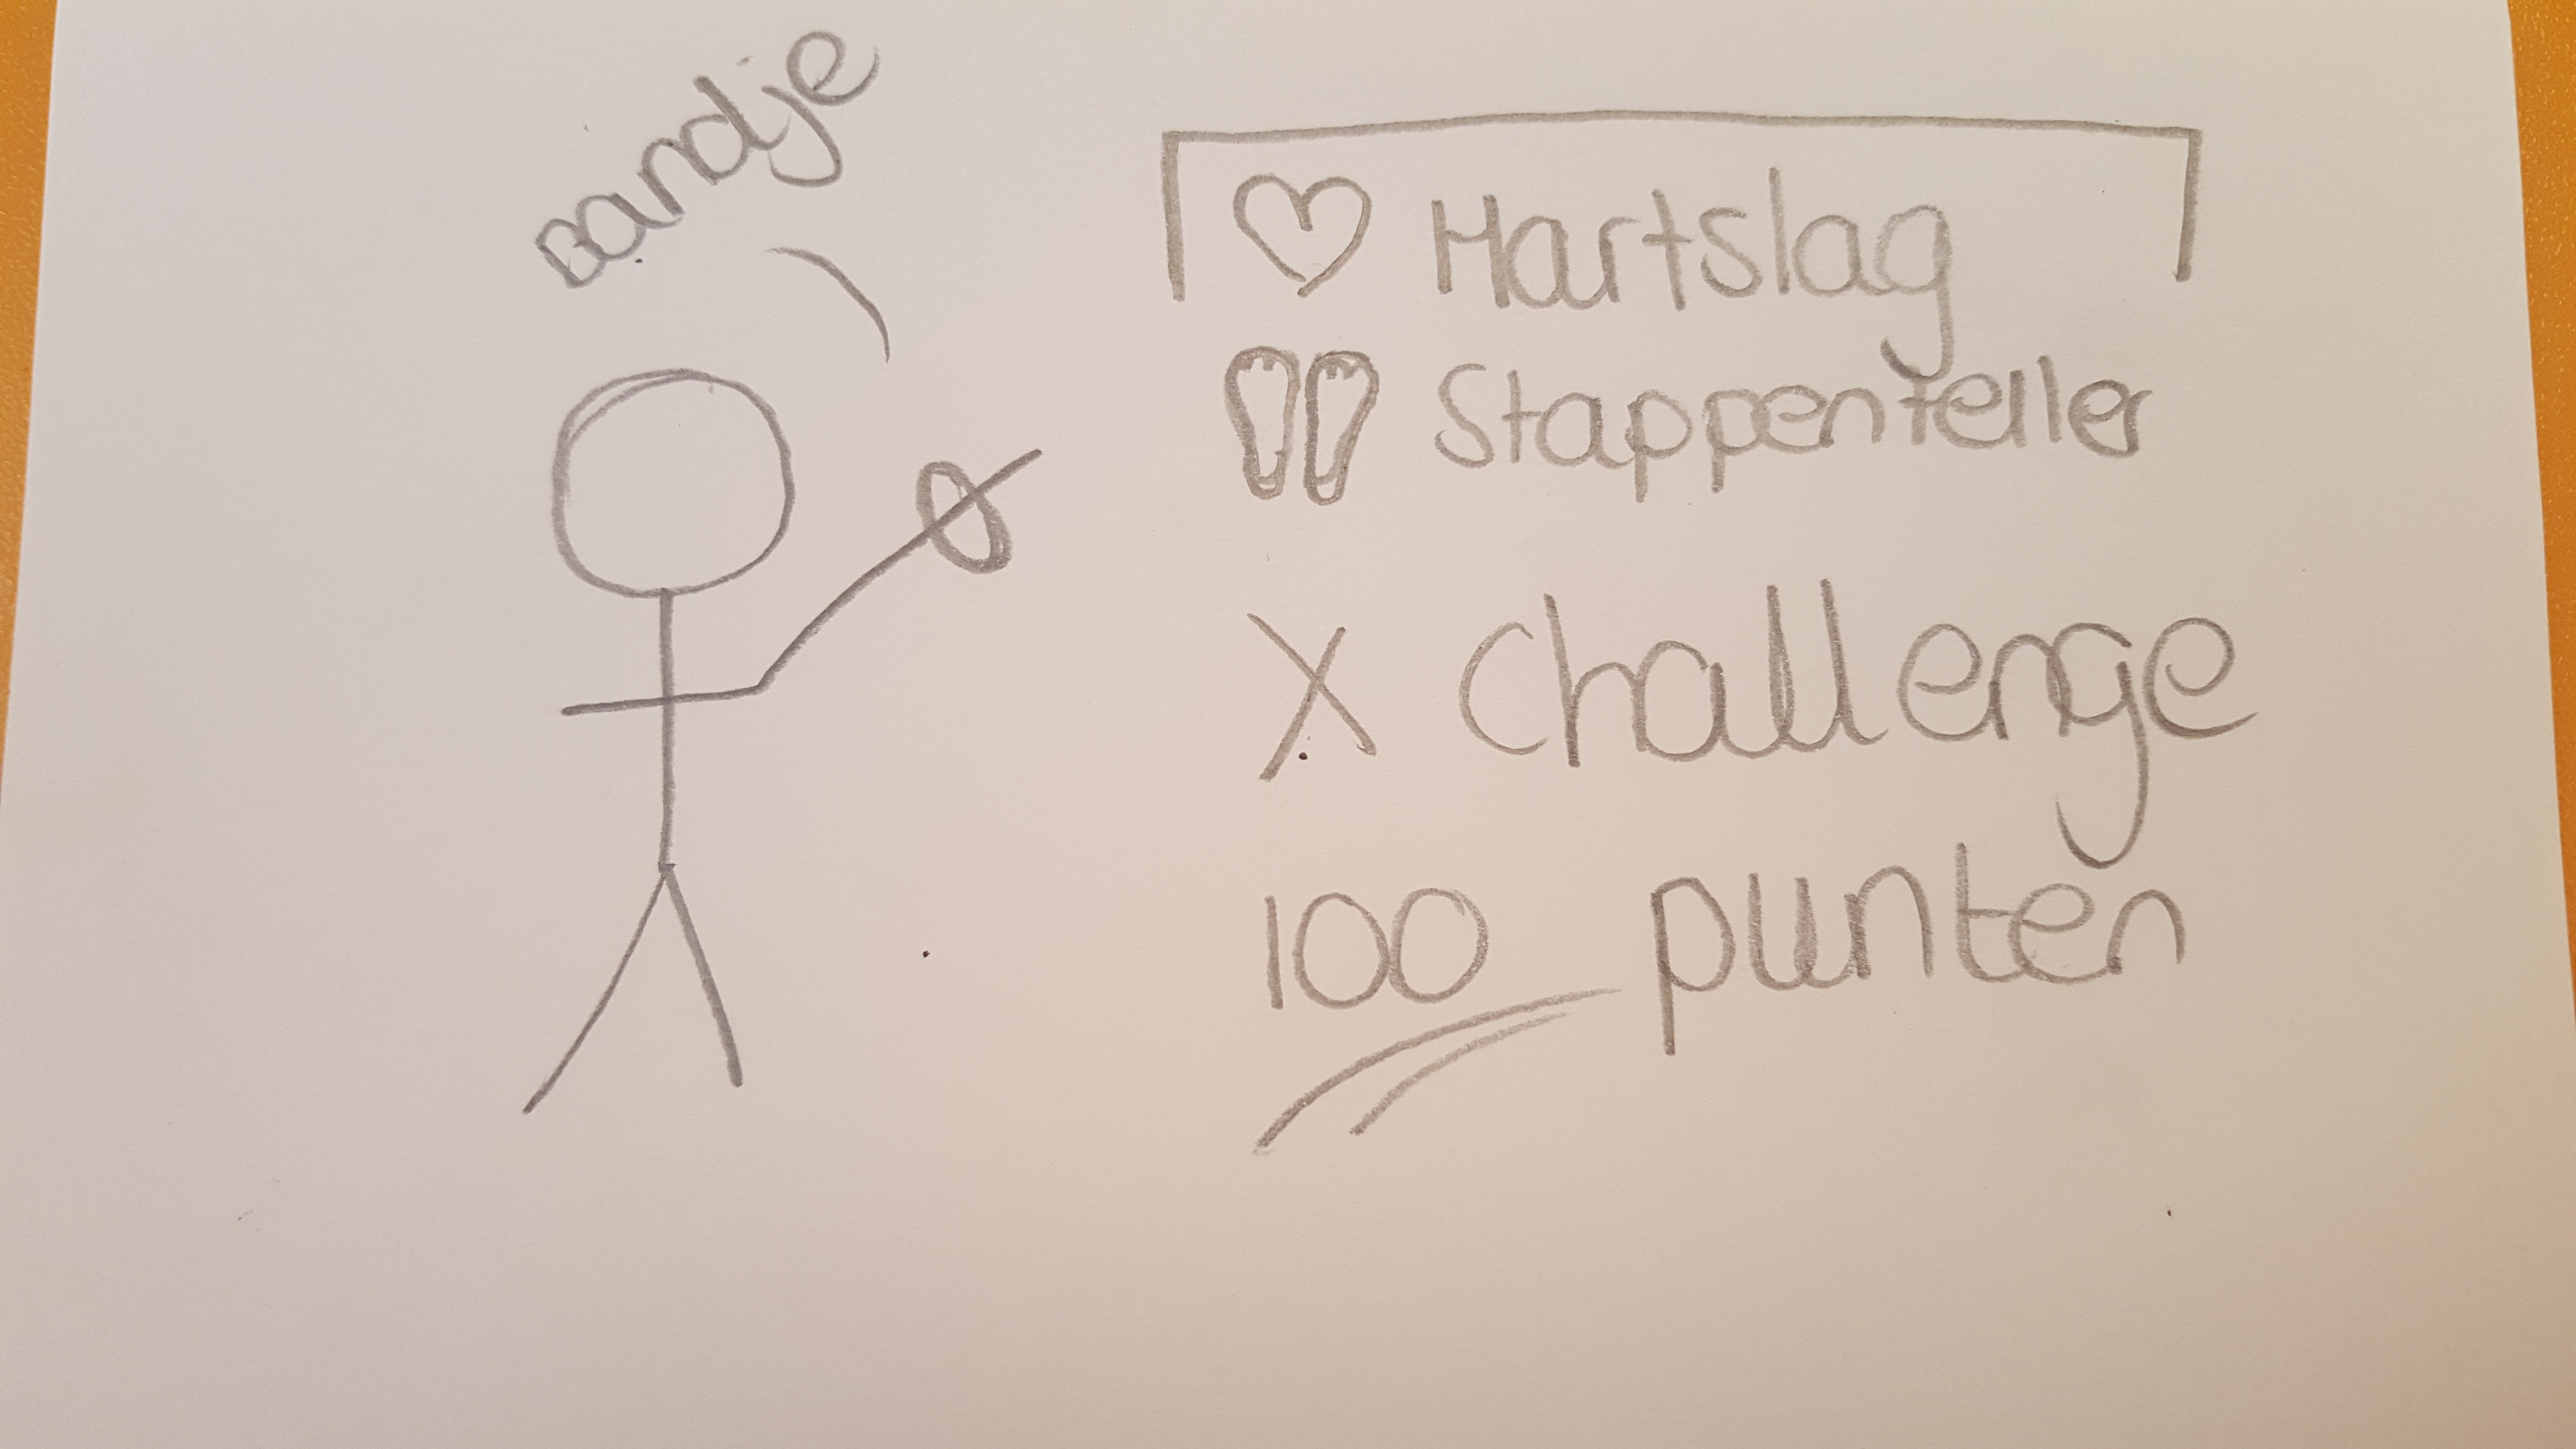 Bandje
Hartslag
Stappenteller
X Challenge
100 punten